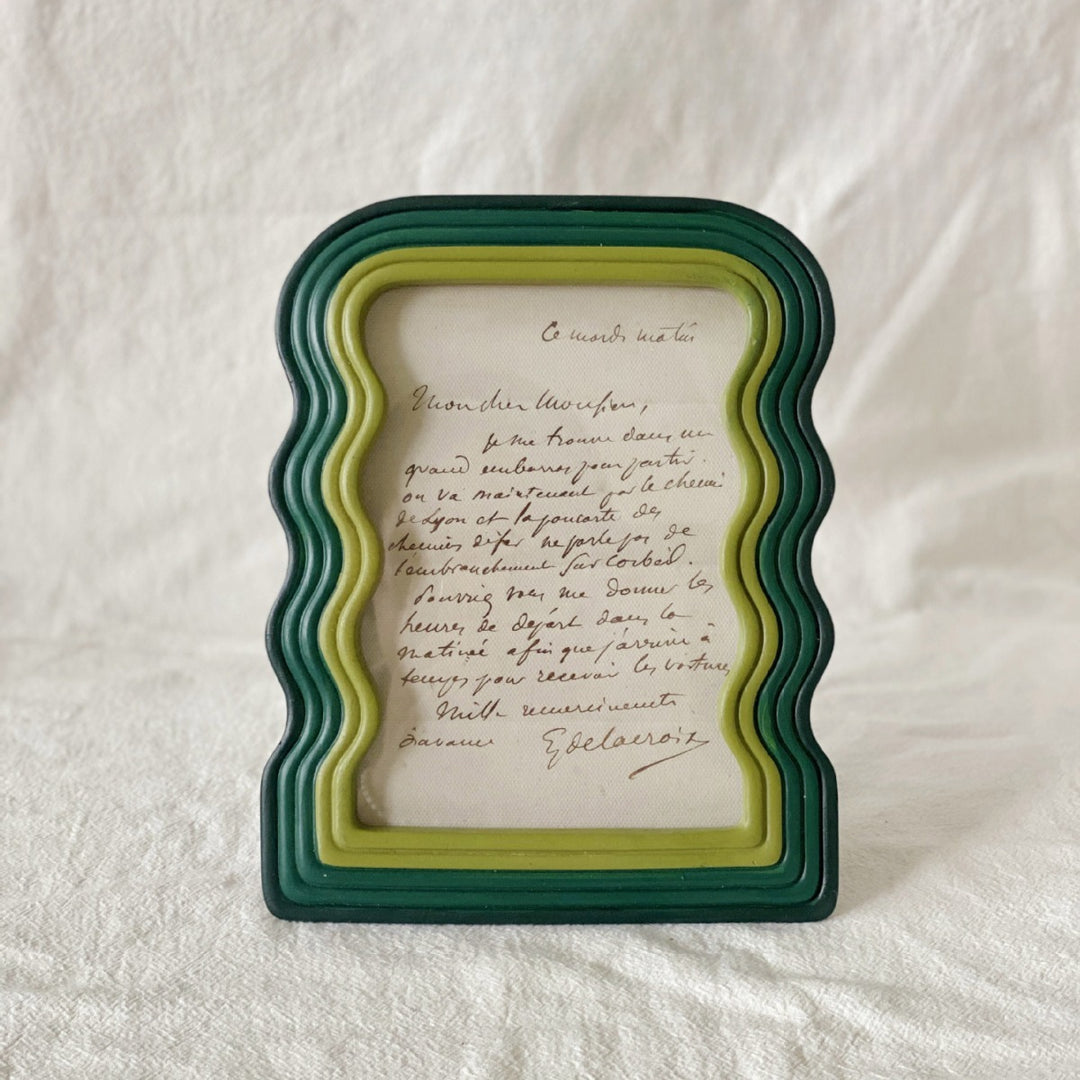 Ce mardi matin
Mon cher Monsieur,
je me trouve dans un
grand embarras pour partir.
on va maintenant par le chemin
de Lyon et la pancarte des
chemins de fer ne parle pas de
l'embranchement sur Corbeil.
Pourriez vous me donner les
heures de départ dans la
matinée afin que j'arrive à
temps pour recevoir les voitures
Mille remerciements
d'avance EDelacroix